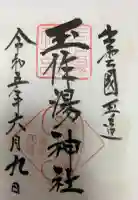 出雲國玉造
玉作湯神社
令和五年六月九日